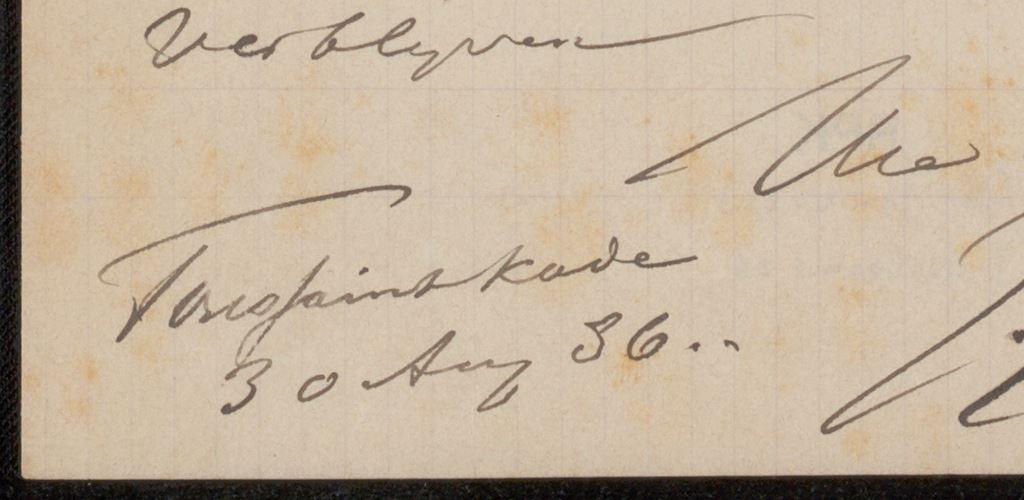 verblyven
Toussaintkade
30 Aug 86..